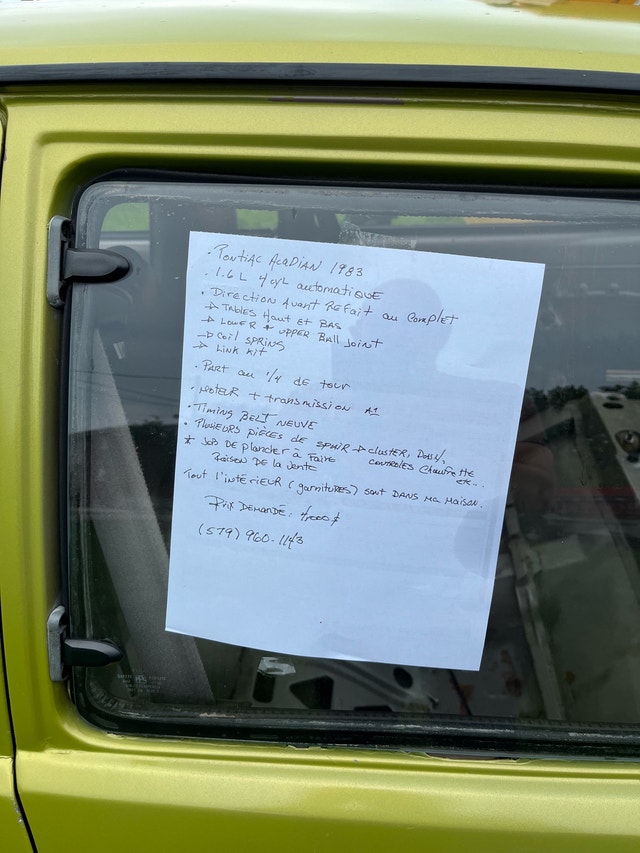 . PONTIAC ACADIAN 1983
. 1.6 L 4 cyl automatiQUE
. DIRECTION AVANT REFAIT au COMPLET
→ TABLES HAUT ET BAS
→ LOWER + UPPER BALL JOINT
→ COIL SPRING
→ LINK KIT
. PART au 1/4 DE TOUR
. MOTEUR + transmission A1
. TIMING BELT NEUVE
. PLUSIEURS PIÈCES DE SPAIR → CLUSTER, DASH,
CONTRÔLES CHAUFRETTE
etc...
* JOB DE PLANCHER à FAIRE
RAISON DE LA VENTE
TOUT L'INTÉRIEUR (garnitures) SONT DANS MA MAISON.
PRIX DEMANDÉ:
(579) 960-1143